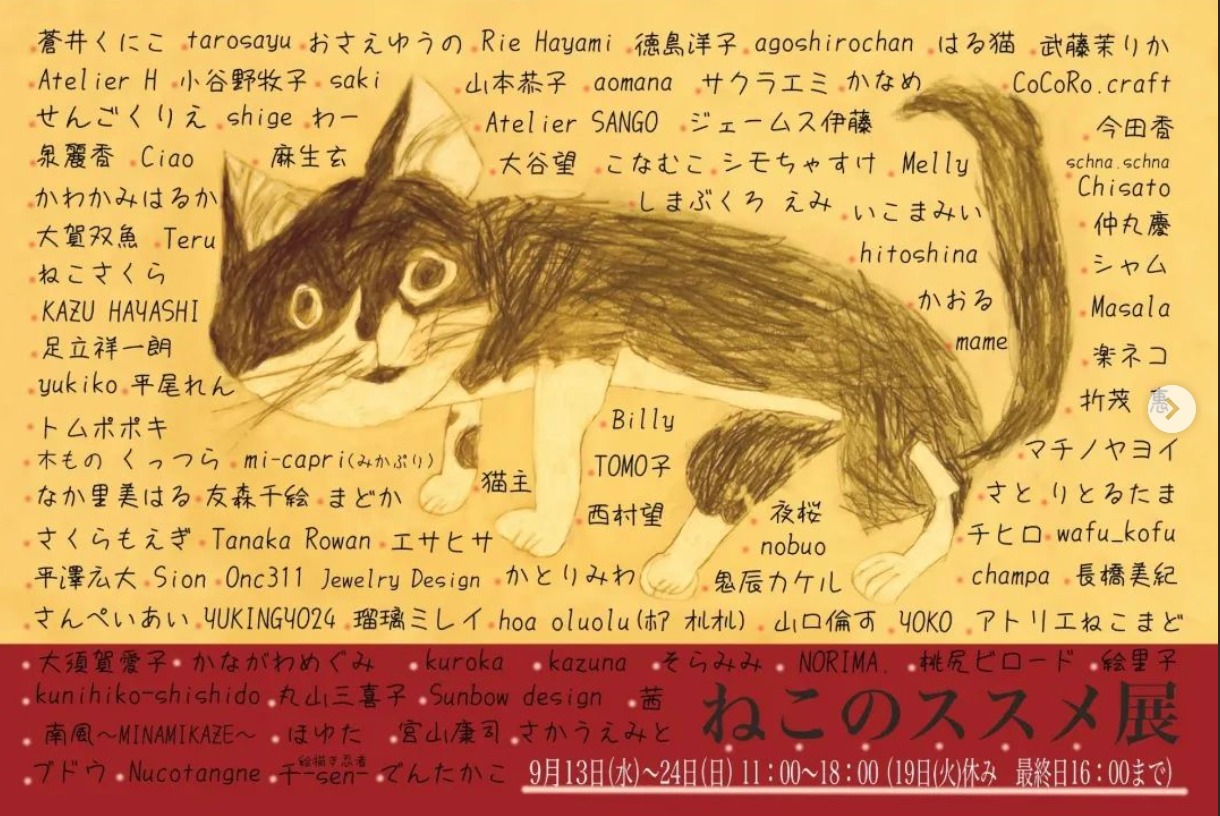 蒼井くにこ ・tarosayu ・おさえゆうの ・Rie Hayami ・徳島洋子 ・agoshirochan ・はる猫 ・武藤茉りか
・Atelier H ・小谷野牧子 ・saki ・山本恭子 ・aomana ・サクラエミ ・かなめ ・CoCoRo.craft
・せんごくりえ ・shige ・わー ・Atelier SANGO ・ジェームス伊藤 ・今田香
・泉麗香 ・Ciao ・麻生玄 ・大谷望 ・こなむこ ・シモちゃすけ ・Melly schna.schna
・かわかみはるか ・しまぶくろ えみ ・いこまみい Chisato
・大賀双魚 ・Teru ・hitoshina ・仲丸慶
・ねこさくら ・かおる ・シャム
・KAZU HAYASHI ・mame ・Masala
・足立祥一朗 ・楽ネコ
・yukiko ・平尾れん ・折茂 恵
・トムポポキ ・Billy ・マチノヤヨイ
・木もの くっつら ・mi-capri(みかぷり) ・猫主 ・TOMO子 ・さと ・りとるたま
・なか里美はる ・友森千絵 ・まどか ・西村望 ・夜桜
・さくらもえぎ ・Tanaka Rowan ・エサヒサ ・nobuo ・チヒロ ・wafu_kofu
・平澤広大 ・Sion ・Onc311 Jewelry Design ・かとりみわ ・鬼辰カケル ・champa ・長橋美紀
・さんぺいあい ・YUKINGYO24 ・瑠璃ミレイ ・hoa oluolu(ホア オルオル) ・山口倫可 ・YOKO ・アトリエねこまど
・大須賀愛子 ・かながわめぐみ ・kuroka ・kazuna ・そらみみ ・NORIMA. ・桃尻ビロード ・絵里子
・kunihiko-shishido ・丸山三喜子 ・Sunbow design ・茜
ねこのススメ展
・南風〜MINAMIKAZE〜 ・ほゆた ・宮山康司 ・さかうえみと
絵描き忍者
・ブドウ ・Nucotangne ・千-sen- ・でんたかこ
9月13日(水)〜24日(日) 11:00〜18:00 (19日(火)休み 最終日16:00まで)